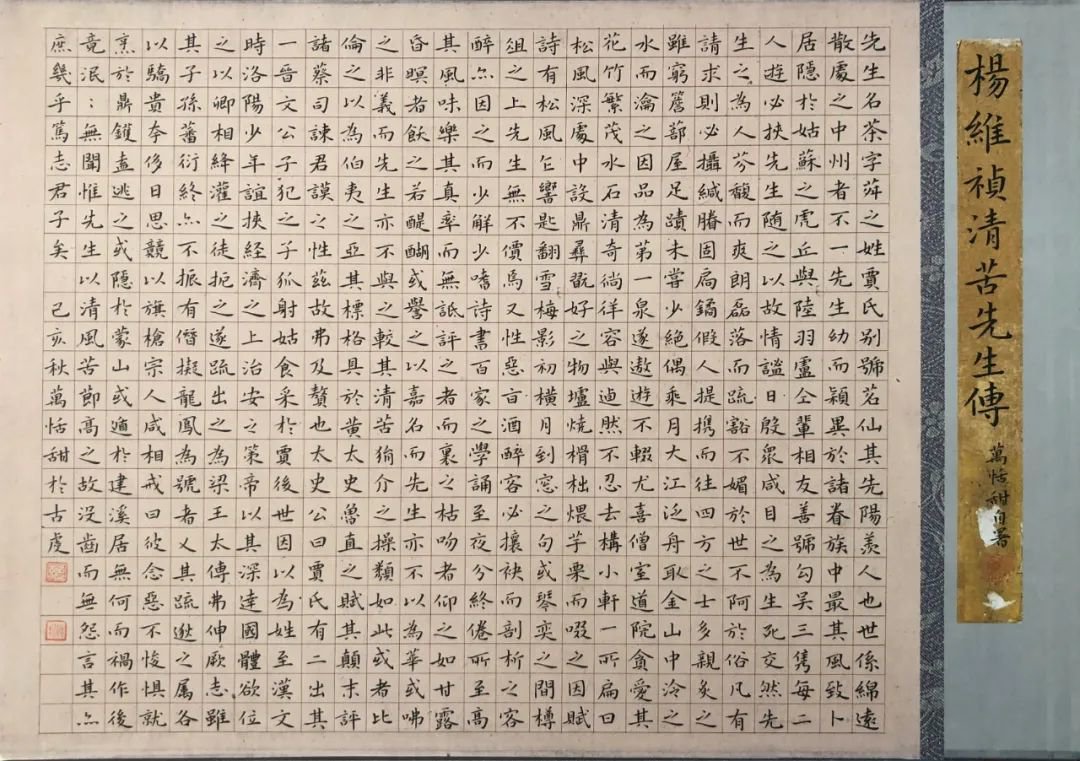 先生名茶字荈之姓賈氏別號茗仙其先陽羨人也世係綿遠
散處之中州者不一先生幼而穎異於諸眷族中最其風致卜
居隱於姑蘇之虎丘與陸羽盧仝輩相友善號勾吳三雋每二
人遊必挾先生随之以故情諡日殷眾咸目之為生死交然先
生之為人芬馥而爽朗磊落而疏豁不媚於世不阿於俗凡有
請求則必攝緘縢固扃鐍假人提携而往四方之士多親炙之
雖窮簷蔀屋足蹟未嘗少絕偶乘月大江泛舟取金山中泠之
水而瀹之因品為第一泉遂遨遊不輟尤喜僧室道院貪愛其
花竹繁茂水石清奇徜徉容與逌然不忍去構小軒一所扁曰
松風深處中設鼎彝翫好之物壚燒榾柮煨芋栗而啜之因賦
詩有松風乍響匙翻雪梅影初橫月到窓之句或琴奕之間樽
俎之上先生無不價焉又性惡旨酒醉容必攘袂而剖析之容
醉亦因之而少解少嗜詩書百家之學誦至夜分終倦所至高
其風味樂其真率而無詆評之者而裹之枯吻者仰之如甘露
昏暝者飲之若醍醐或譽之以嘉名而先生亦不以為華或咈
之非義而先生亦不與之較其清苦狷介之操類如此或者比
倫之以為伯夷之亞其標格具於黃太史魯直之賦其顛末評
諸蔡司諫君謨之性茲故弗及贅也太史公曰賈氏有二出其
一晉文公子犯之子狐射姑食采於賈後世因以為姓至漢文
時洛陽少年誼挾經濟之上治安之策帝以其深達國體欲位
之以卿相絳灌之徒扼之遂疏出之為梁王太傅弗伸厥志雖
其子孫蕃衍終亦不振有僭擬龍鳳為號者乂其疏逖之属各
以驕貴夸侈日思競以旗槍宗人咸相戒曰彼念惡不悛懼就
烹於鼎鑊盍逃之或隱於蒙山或遁於建溪居無何而禍作後
竟泯:無聞惟先生以清風苦節高之故沒齒而無怨言其亦
庶幾乎篤志君子矣 己亥秋萬恬甜於古虔
楊維禎清苦先生傳
萬恬甜自署